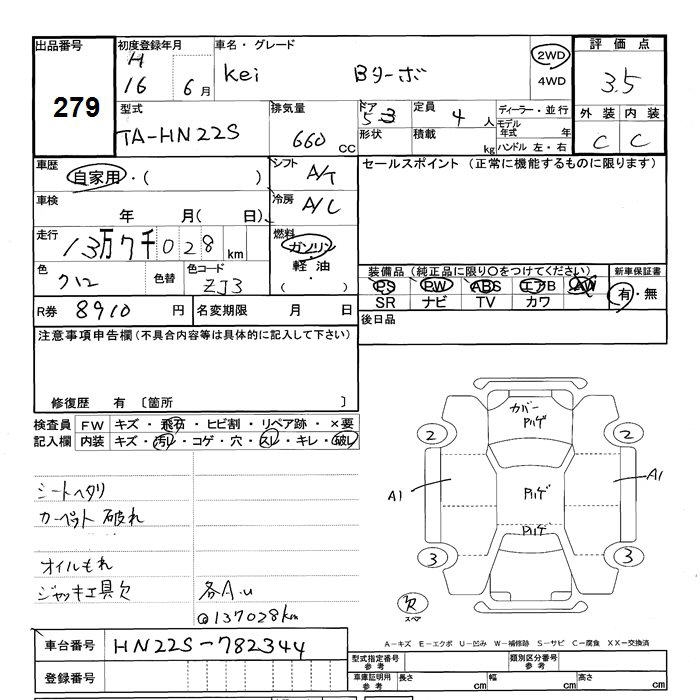 出品番号 初度登録年月 車名・グレード 2WD 評価点
H
16 6月 Kei Bターボ 4WD 3.5
279
型式 排気量 ドア 定員 ディーラー・並行 外装 内装
TA-HN22S 660 CC 5-3 4人 モデル年式 年 C C
形状 積載 kg ハンドル 左・右
車歴 自家用・( ) シフト A/T セールスポイント (正常に機能するものに限ります)
車検 年 月( 日) 冷房 A/C
走行 13万7千028km 燃料 ガソリン・軽油・( )
色 クロ 色替 色コード ZJ3
装備品(純正品に限り○をつけてください) 新車保証書
PS PW ABS エアB AW 有・無
SR ナビ TV カワ
R券 8910円 名変期限 月 日
後日品
注意事項申告欄(不具合内容等は具体的に記入して下さい)
修復歴 有 〔箇所 〕
検査員 FW キズ・飛石・ヒビ割・リペア跡・×要
記入欄 内装 キズ・汚れ・コゲ・穴・スレ・キレ・破レ
シートヘタリ
カーペット 破れ
オイルもれ
ジャッキ工具欠 各A.U
@137028km
カバー
ハゲ
2 2
A1 ハゲ A1
ハゲ
3 3
欠
スペア
A-キズ E-エクボ U-凹み W-補修跡 S-サビ C-腐食 XX-交換済
車台番号 HN22S-782344
型式指定番号 参考 類別区分番号 参考
登録番号 車庫証明用 参考 長さ cm 幅 cm 高さ cm